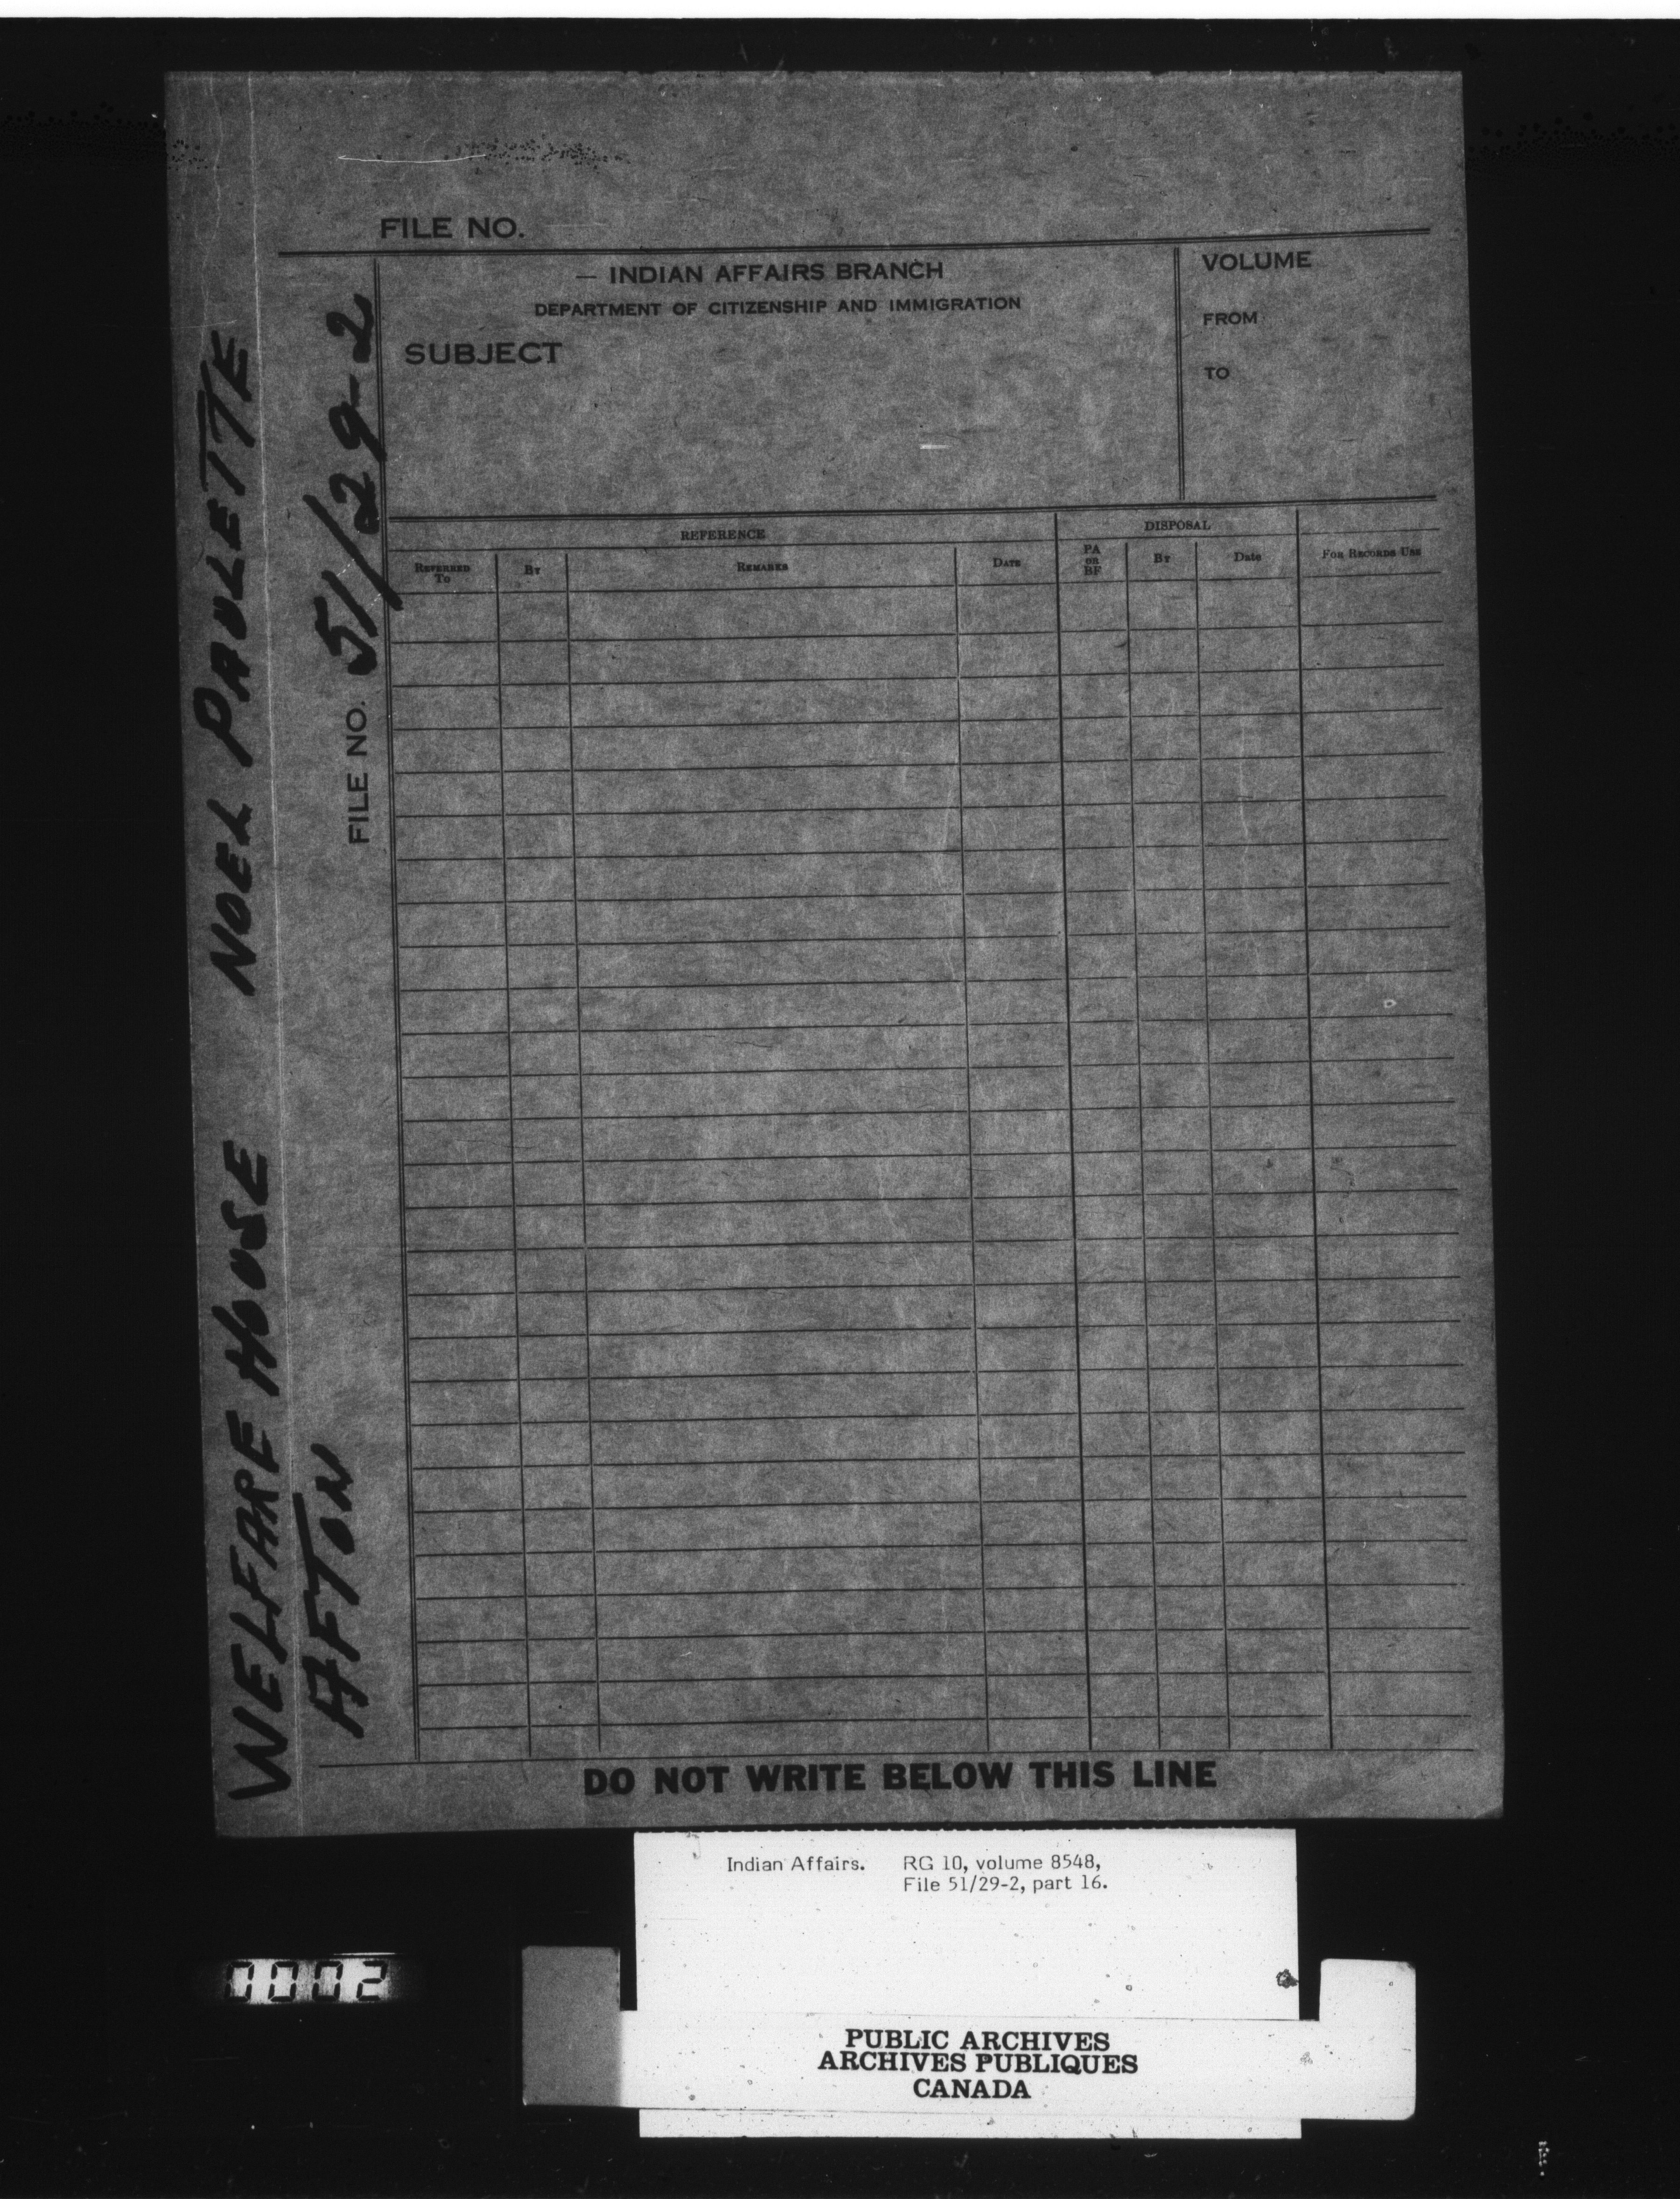 FILE NO.
— INDIAN AFFAIRS BRANCH
DEPARTMENT OF CITIZENSHIP AND IMMIGRATION
SUBJECT
VOLUME
FROM
TO
REFERENCE
DISPOSAL
REFERRED TO
BY
REMARKS
DATE
PA OR BF
BY
Date
FOR RECORDS USE
WELFARE HOUSE NOEL PAULETTE
AFTON
FILE NO. 51/29-2
DO NOT WRITE BELOW THIS LINE
Indian Affairs. RG 10, volume 8548,
File 51/29-2, part 16.
0002
PUBLIC ARCHIVES
ARCHIVES PUBLIQUES
CANADA